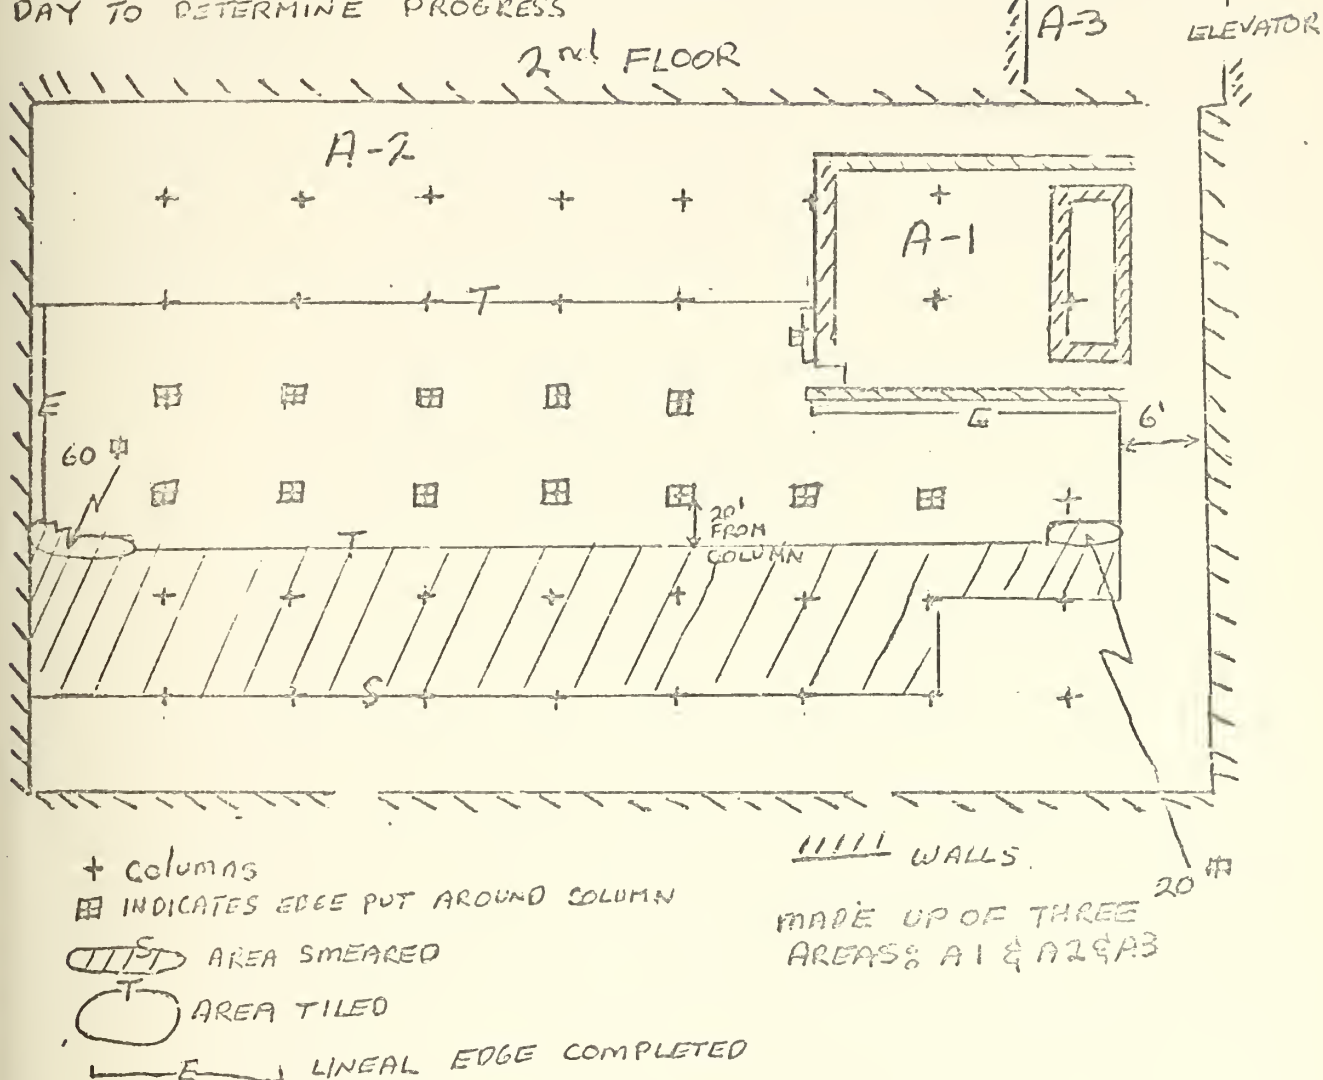 DAY TO DETERMINE PROGRESS
A-3
ELEVATOR
2nd FLOOR
A-2
A-1
T
E
E
6'
60
20'
FROM
COLUMN
T
S
+ Columns
INDICATES EDGE PUT AROUND COLUMN
S AREA SMEARED
T AREA TILED
E LINEAL EDGE COMPLETED
WALLS.
20
MADE UP OF THREE
AREAS: A1 & A2 & A3